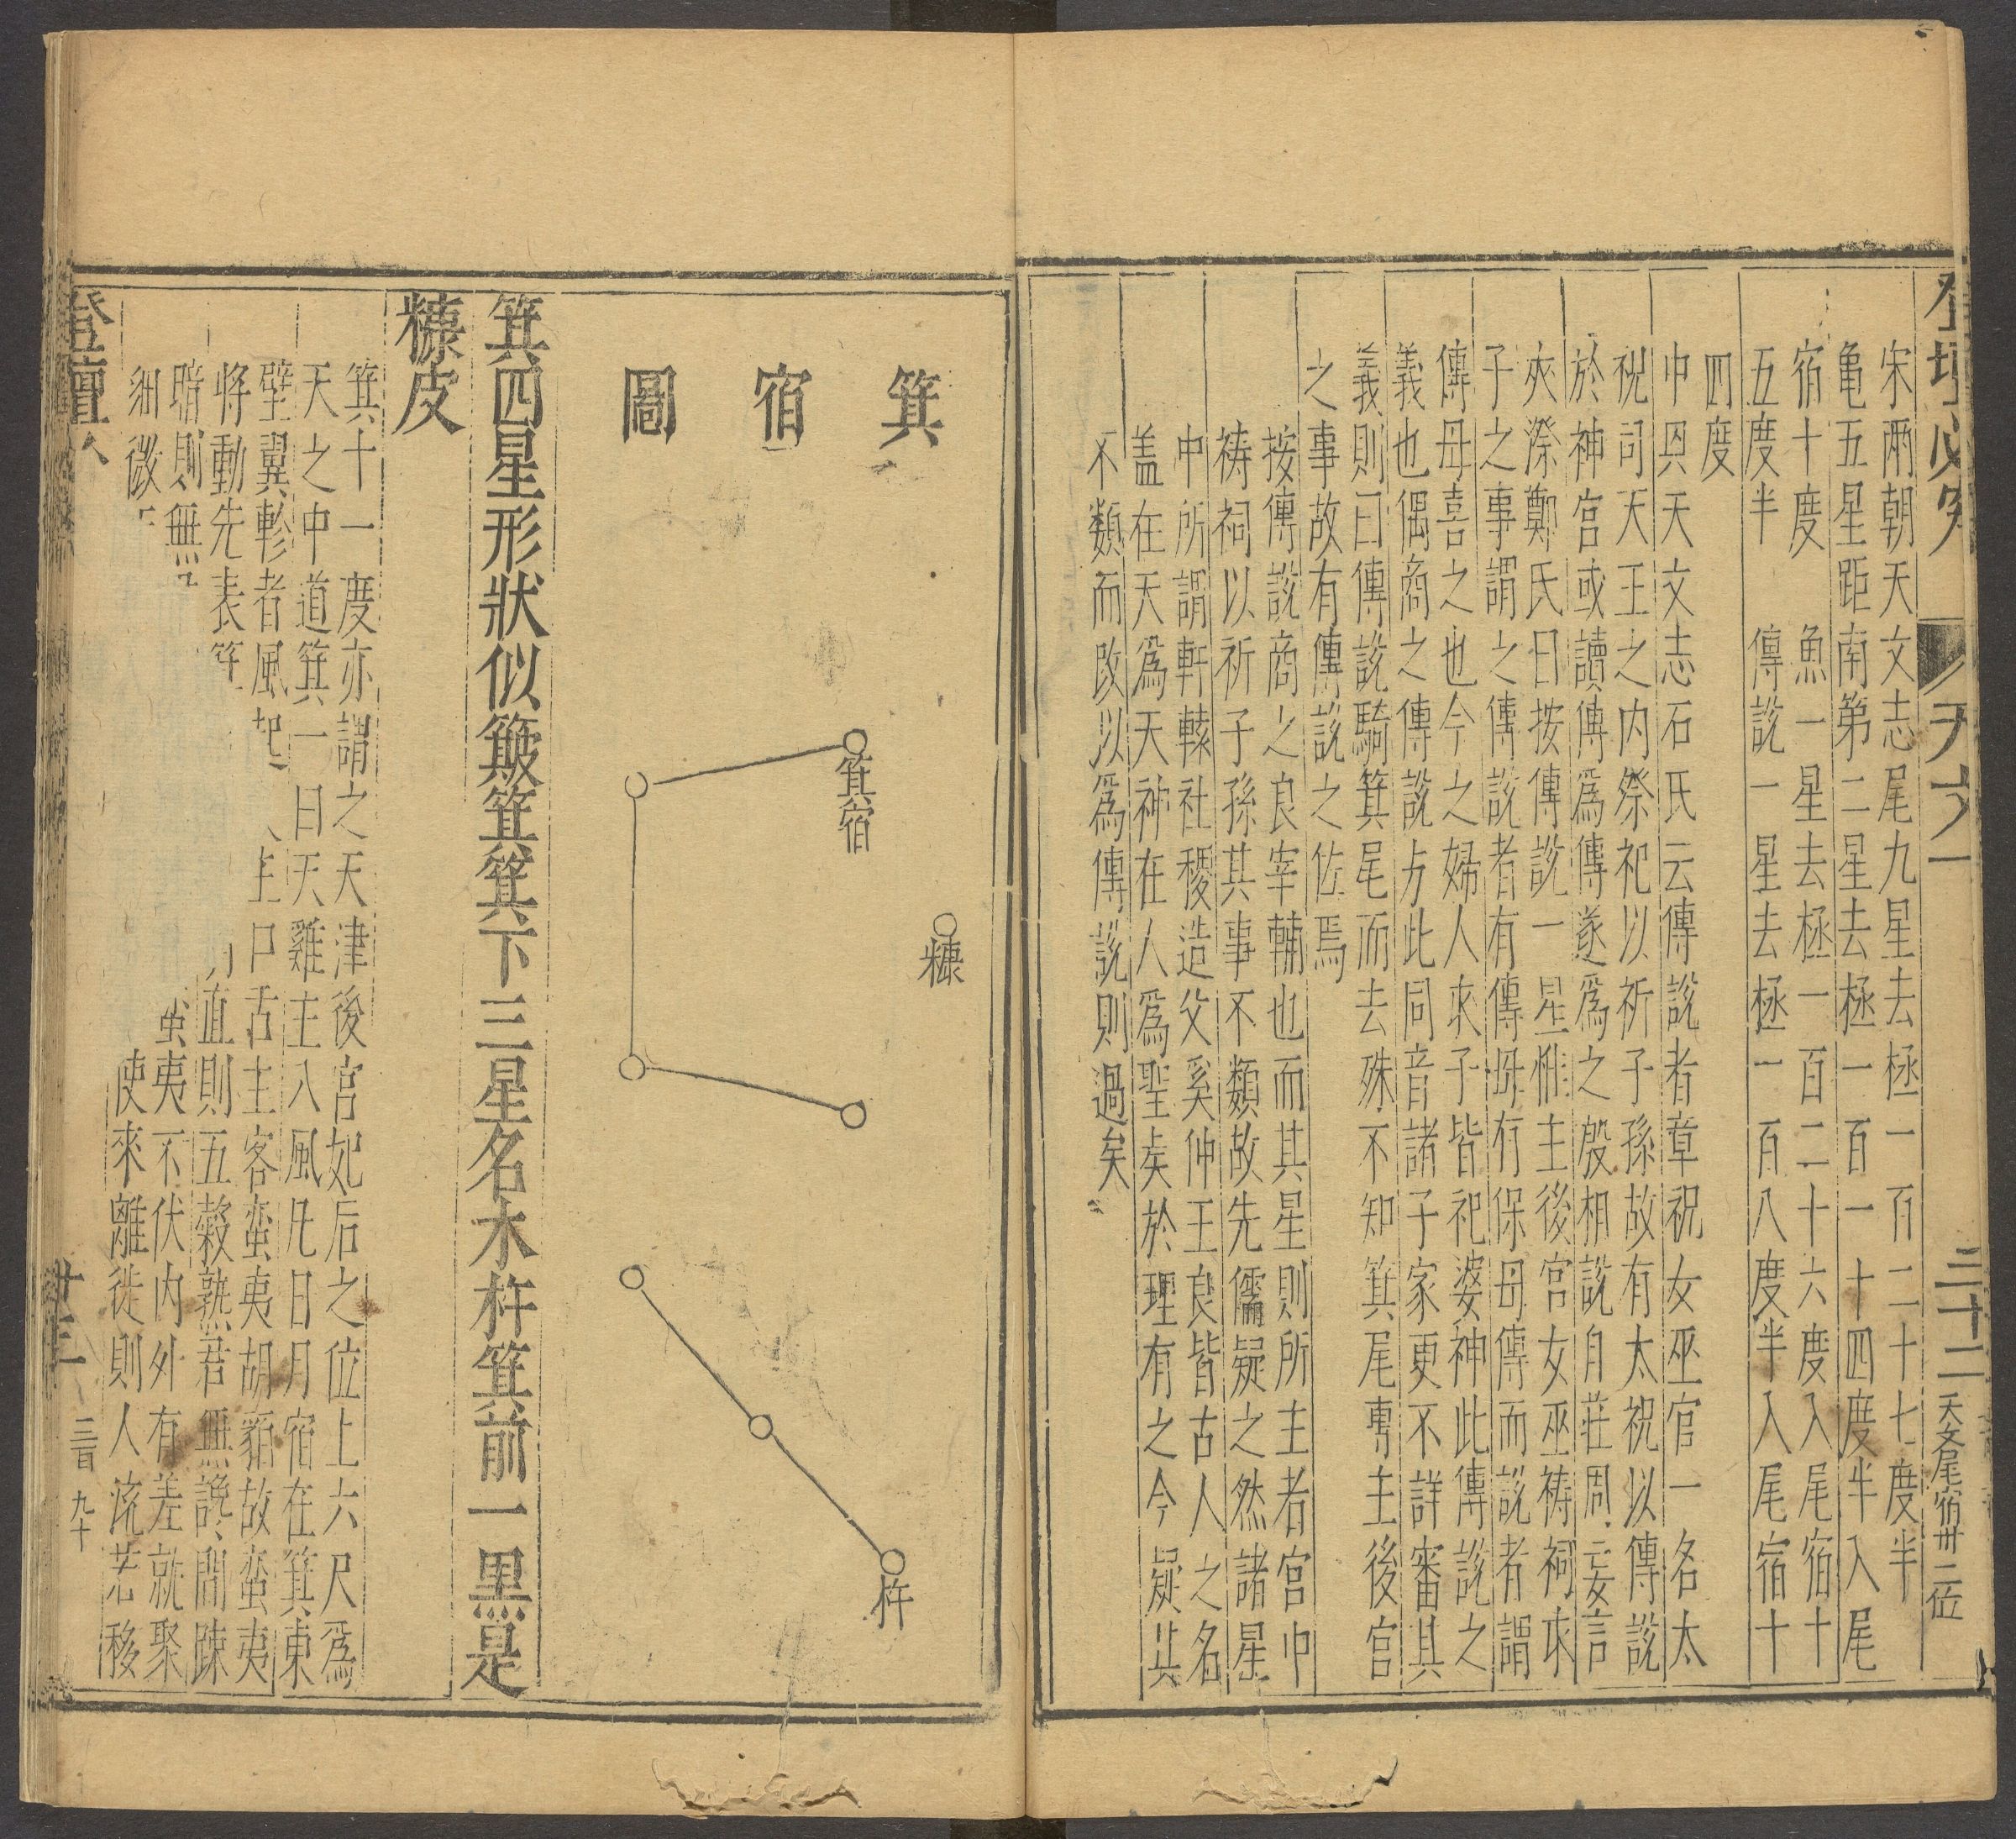 天六 三十二 天文尾宿卅二位
宋兩朝天文志尾九星去極一百二十七度半
亀五星距南第二星去極一百一十四度半入尾
宿十度 魚一星去極一百二十六度入尾宿十
五度半 傳說一星去極一百八度半入尾宿十
四度
中㒷天文志石氏云傳說者章祝女巫官一名太
祝司天王之内祭祀以祈子孫故有太祝以傳說
於神宮或讀傳爲傳遂爲之殷相說自莊周妄言
夾漈鄭氏曰按傳說一星惟主後宮女巫禱祠求
子之事謂之傳說者有傳母有保母傳而說者謂
傳母喜之也今之婦人求子皆祀婆神此傳說之
義也偶商之傳說方此同音諸子家更不詳審其
義則曰傳說騎箕尾而去殊不知箕尾專主後宫
之事故有傳說之佐焉
按傳說商之良宰輔也而其星則所主者宮中
禱祠以祈子孫其事不類故先儒疑之然諸星
中所謂軒轅社稷造父奚仲王良皆古人之名
盖在天爲天神在人爲聖矣於理有之今疑其
不類而改以爲傳說則過矣
箕宿圖
箕宿
糠
杵
箕四星形狀似簸箕箕下三星名木杵箕前一黑是
糠皮
箕十一度亦謂之天津後宮妃后之位上六尺爲
天之中道箕一曰天雞主八風凡日月宿在箕東
壁翼軫者風起 主口舌主客蛮夷胡貊故蛮夷
將動先表箕 直則五穀熟君無讒間踈
暗則無 蛮夷不伏内外有差就聚
細微 使來離徙則人流若移
登壇 廿三 三百九十